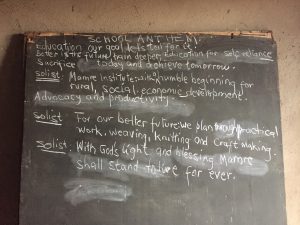 SCHOOL ANTHEM
Education our goal lets toil for it.
Better is the future, train deeper, Education for self reliance
Sacrifice today and achieve tomorrow.
Solist: Mamre Institute, a humble beginning for
rural, social, economic development.
Advocacy and productivity.
Solist: For our better future we plan through practical
work, weaving, knitting and craft making.
Solist: With God's light and blessing Mamre
shall stand to live for ever.